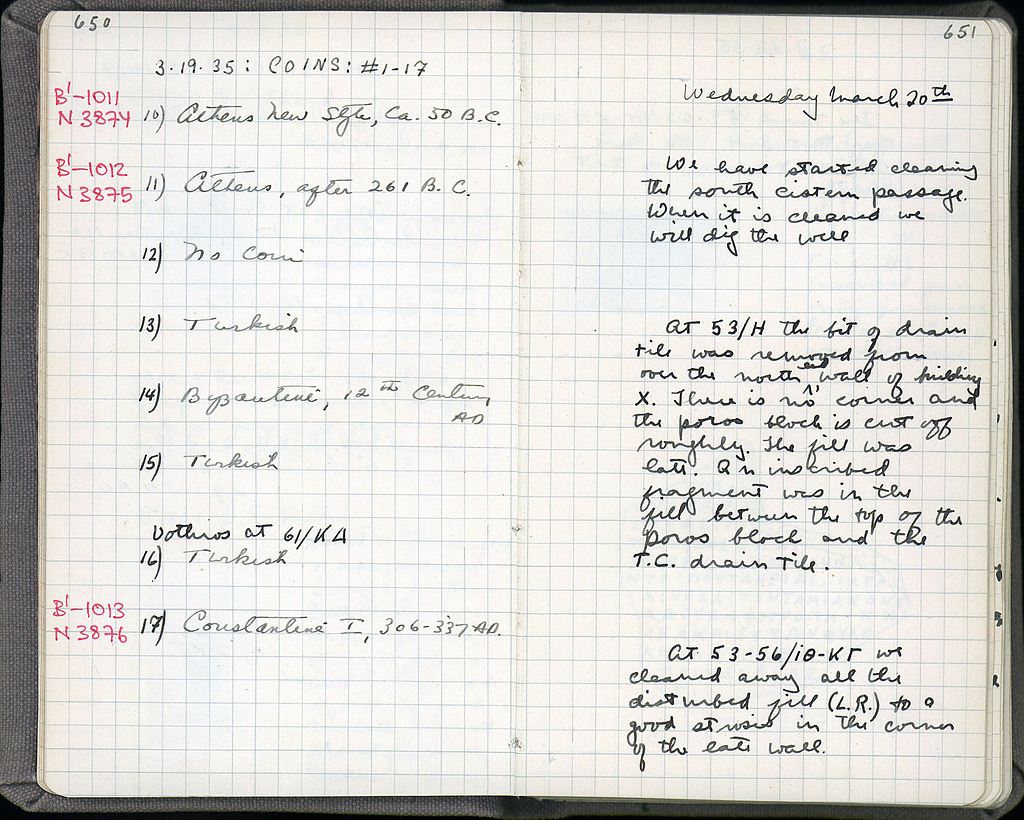 650
3·19·35: COINS: #1-17
B'-1011
N 3874 10) Athens New Style, Ca. 50 B.C.
B'-1012
N 3875 11) Athens, after 261 B.C.
12) No Coin
13) Turkish
14) Byzantine, 12th Century
AD
15) Turkish
Bothros at 61/ΚΔ
16) Turkish
B'-1013
N 3876 17) Constantine I, 306-337 AD.
651
Wednesday March 20th
We have started cleaning
the south cistern passage.
When it is cleaned we
will dig the well
At 53/H the bit of drain
tile was removed from
over the north end wall of building
X. There is no corner and
the poros block is cut off
roughly. The fill was
late. An inscribed
fragment was in the
fill between the top of the
poros block and the
T.C. drain tile.
At 53-56/ΙΘ-ΚΓ we
cleaned away all the
disturbed fill (L.R.) to a
good strosis in the corner
of the late wall.